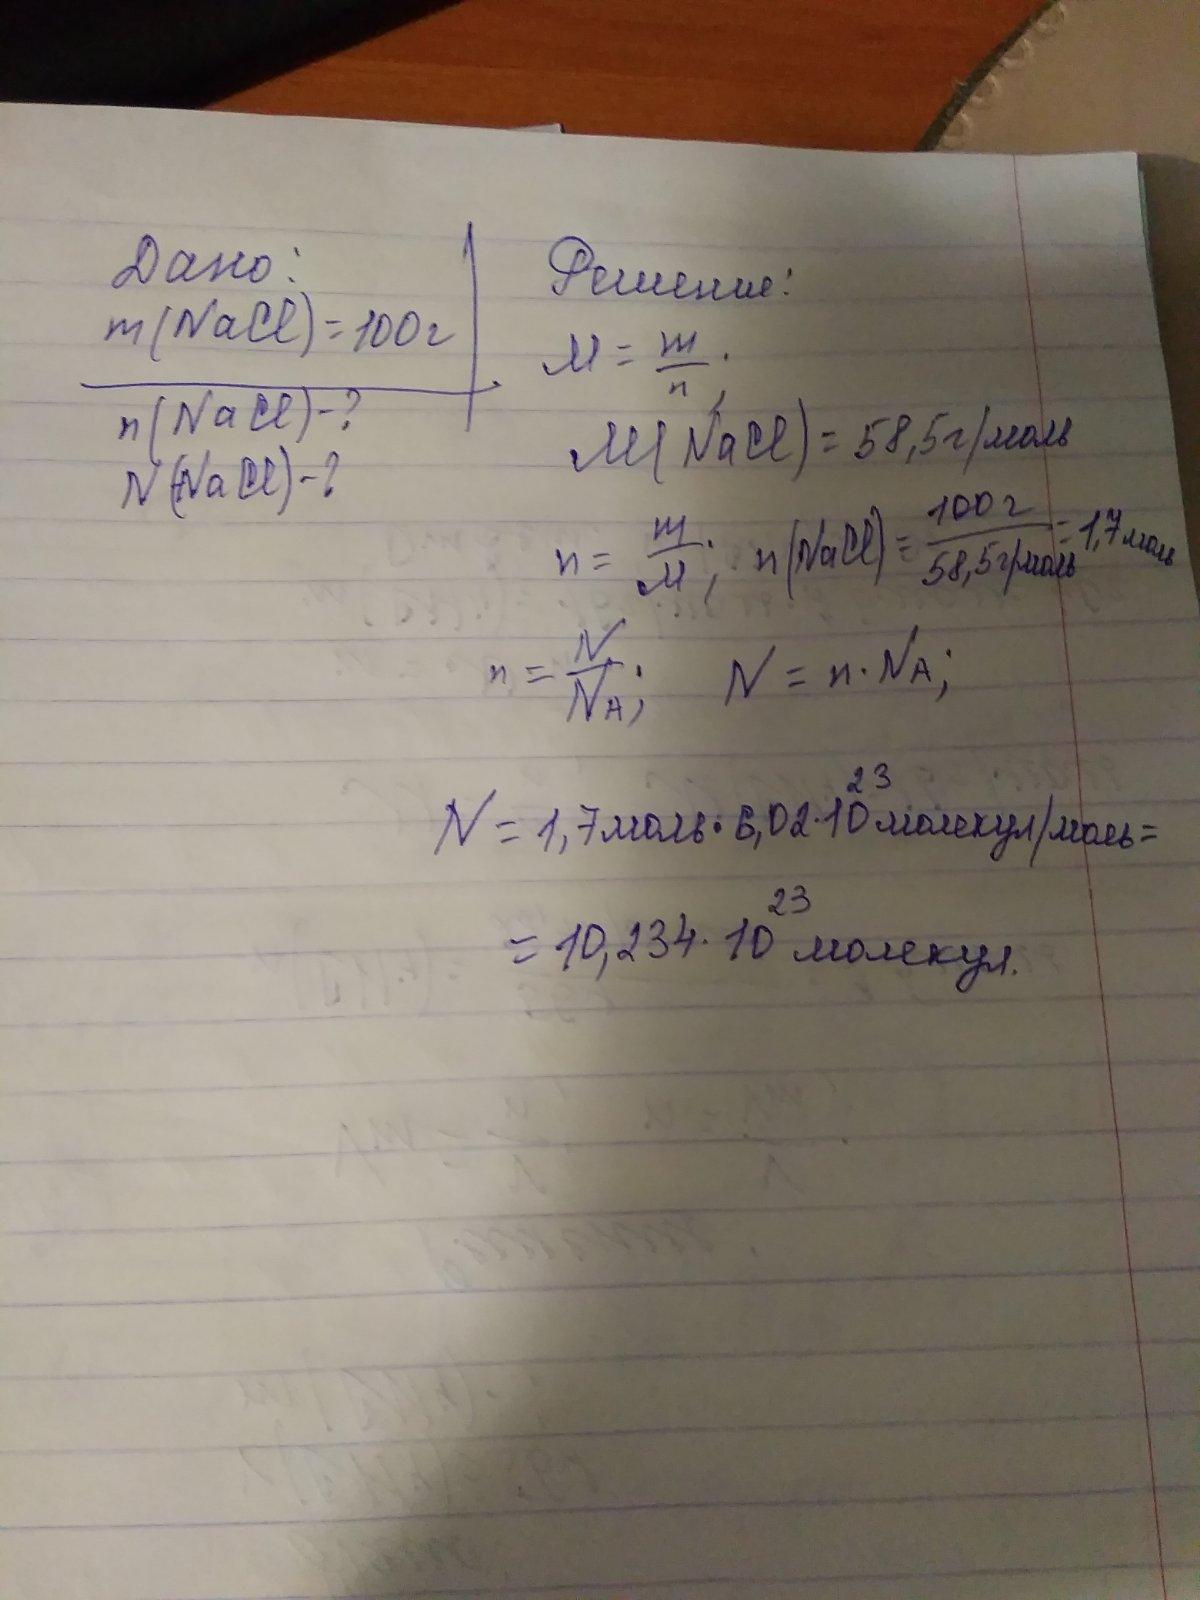 Дано:
m(NaCl)=100г
n(NaCl)-?
N(NaCl)-?
Решение:
M = m/n;
M(NaCl) = 58,5г/моль
n = m/M; n(NaCl) = 100г/58,5г/моль = 1,7моль
n = N/NA; N = n·NA;
N = 1,7моль·6,02·10²³молекул/моль=
= 10,234·10²³ молекул.